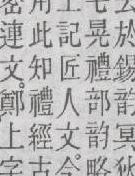 於錫韵冥
晃禮部韵略
上記匠人文今
用此知禮經古
密連文鄭上字